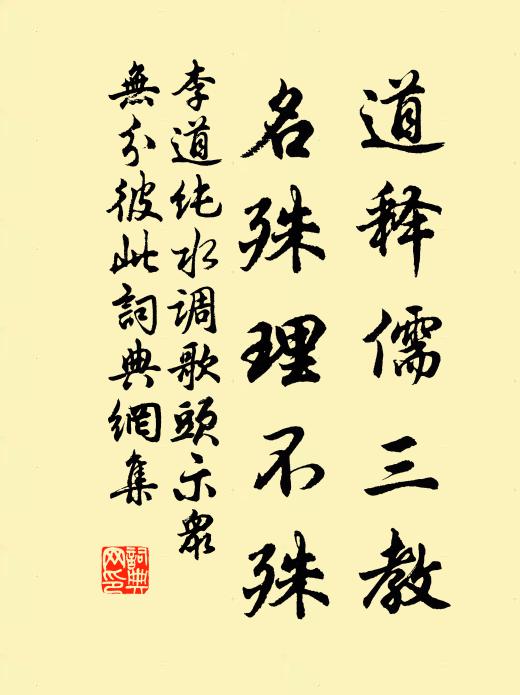 道释儒三教
名殊理不殊
李道纯水调歌头示衆
無分彼此詞典網集
詞典网印